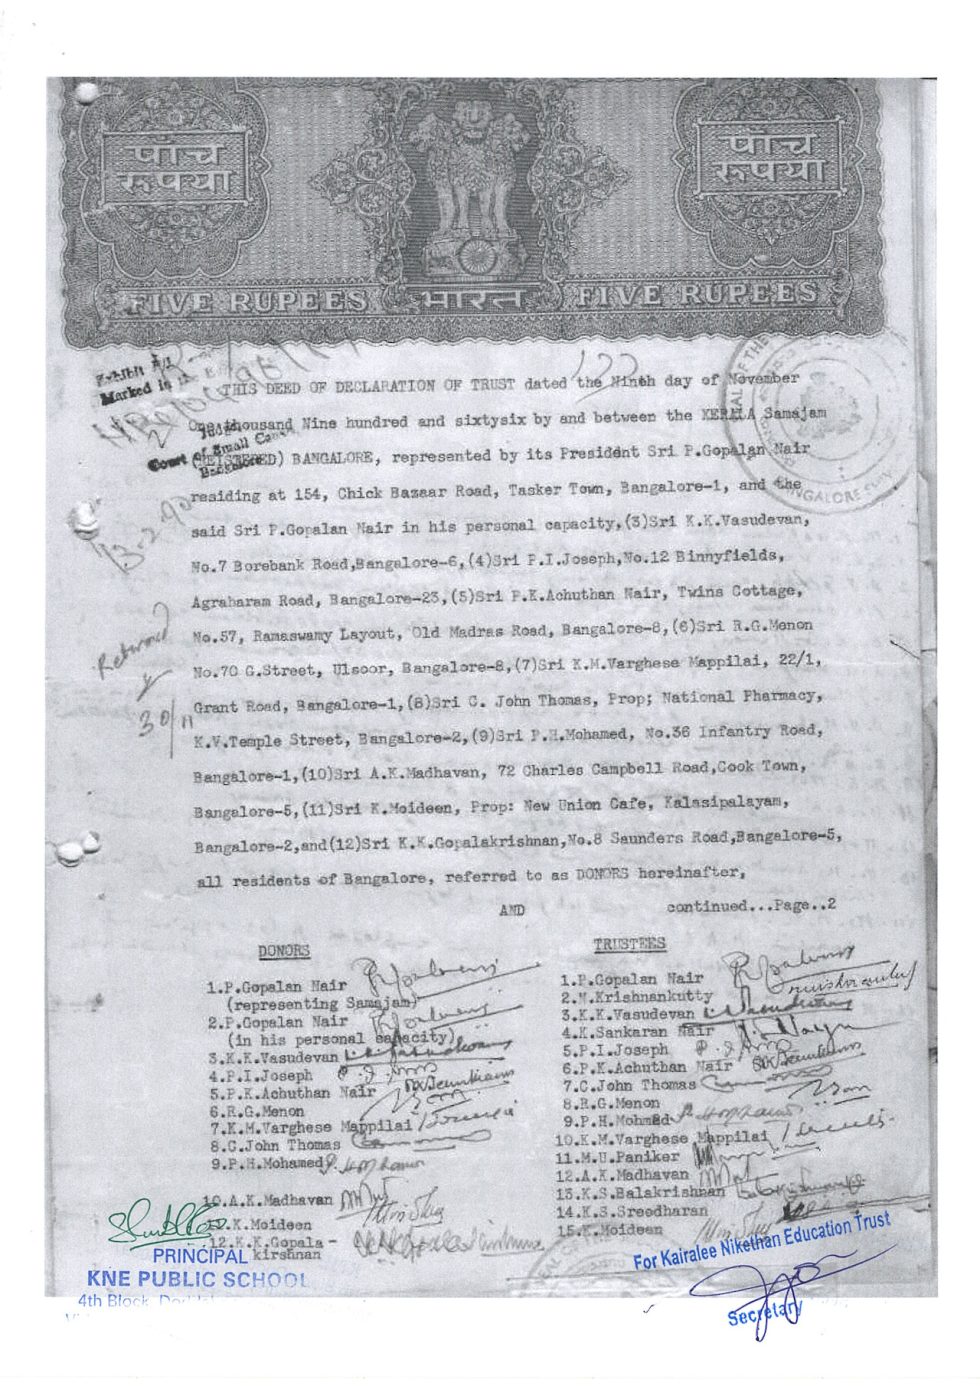 पांच रूपया
पांच रूपया
FIVE RUPEES भारत FIVE RUPEES
Exhibit
Marked in the
THIS DEED OF DECLARATION OF TRUST dated the Ninth day of November
One thousand Nine hundred and sixtysix by and between the KERALA Samajam
(REGISTERED) BANGALORE, represented by its President Sri P.Gopalan Nair
Court of Small
Bangalore
residing at 154, Chick Bazaar Road, Tasker Town, Bangalore-1, and the
said Sri P.Gopalan Nair in his personal capacity,(3)Sri K.K.Vasudevan,
13-2-90
No.7 Borebank Road,Bangalore-6,(4)Sri P.I.Joseph,No.12 Binnyfields,
Agraharam Road, Bangalore-23,(5)Sri P.K.Achuthan Nair, Twins Cottage,
No.57, Ramaswamy Layout, Old Madras Road, Bangalore-8,(6)Sri R.G.Menon
Returned
No.70 G.Street, Ulsoor, Bangalore-8,(7)Sri K.M.Varghese Mappilai, 22/1,
Grant Road, Bangalore-1,(8)Sri C. John Thomas, Prop; National Pharmacy,
30/11
K.V.Temple Street, Bangalore-2,(9)Sri P.H.Mohamed, No.36 Infantry Road,
Bangalore-1,(10)Sri A.K.Madhavan, 72 Charles Campbell Road,Cook Town,
Bangalore-5,(11)Sri K.Moideen, Prop: New Union Cafe, Kalasipalayam,
Bangalore-2,and(12)Sri K.K.Gopalakrishnan,No.8 Saunders Road,Bangalore-5,
all residents of Bangalore, referred to as DONORS hereinafter,
AND continued...Page..2
DONORS
1.P.Gopalan Nair
(representing Samajam)
2.P.Gopalan Nair
(in his personal capacity)
3.K.K.Vasudevan
4.P.I.Joseph
5.P.K.Achuthan Nair
6.R.G.Menon
7.K.M.Varghese Mappilai
8.C.John Thomas
9.P.H.Mohamed
10.A.K.Madhavan
11.K.Moideen
12.K.K.Gopala-
kirshnan
TRUSTEES
1.P.Gopalan Nair
2.N.Krishnankutty
3.K.K.Vasudevan
4.K.Sankaran Nair
5.P.I.Joseph
6.P.K.Achuthan Nair
7.C.John Thomas
8.R.G.Menon
9.P.H.Mohmed
10.K.M.Varghese Mappilai
11.M.U.Paniker
12.A.K.Madhavan
13.K.S.Balakrishnan
14.K.S.Sreedharan
15.K.Moideen
PRINCIPAL
KNE PUBLIC SCHOOL
4th Block,
For Kairalee Nikethan Education Trust
Secretary